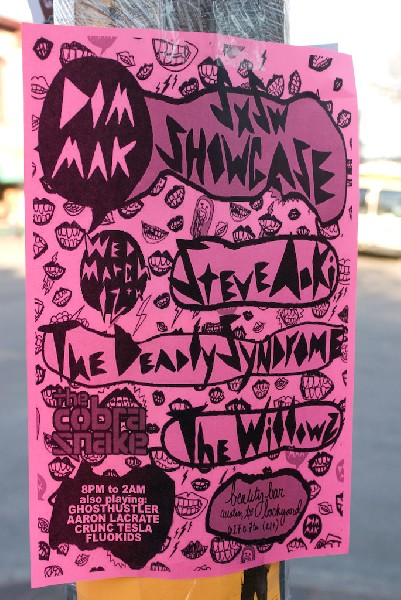 DIM
MAK
SXSW
SHOWCASE
WED
MARCH
17TH
STEVE AOKI
THE DEADLY SYNDROME
the
cobra
snake
THE WILLOWZ
8PM to 2AM
also playing:
GHOSTHUSTLER
AARON LACRATE
CRUNC TESLA
FLUOKIDS
beauty bar
backyard